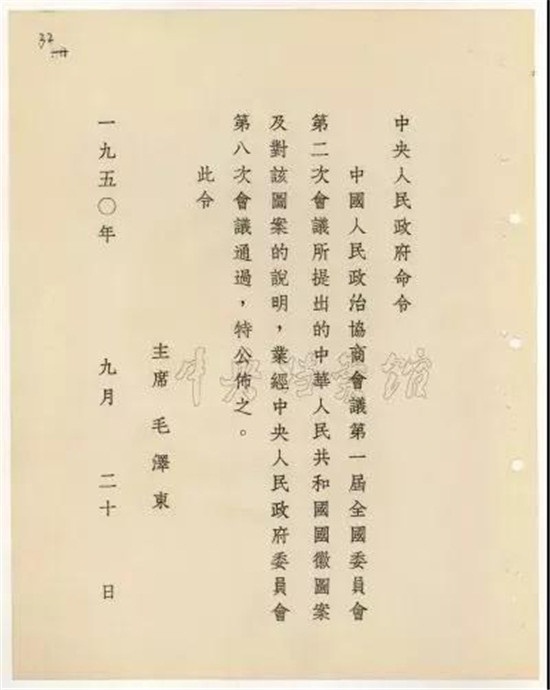 37
中央人民政府命令
中國人民政治協商會議第一屆全國委員會
第二次會議所提出的中華人民共和國國徽圖案
及對該圖案的說明，業經中央人民政府委員會
第八次會議通過，特公佈之。
此令
主席 毛澤東
一九五〇年 九月 二十 日
中央档案馆